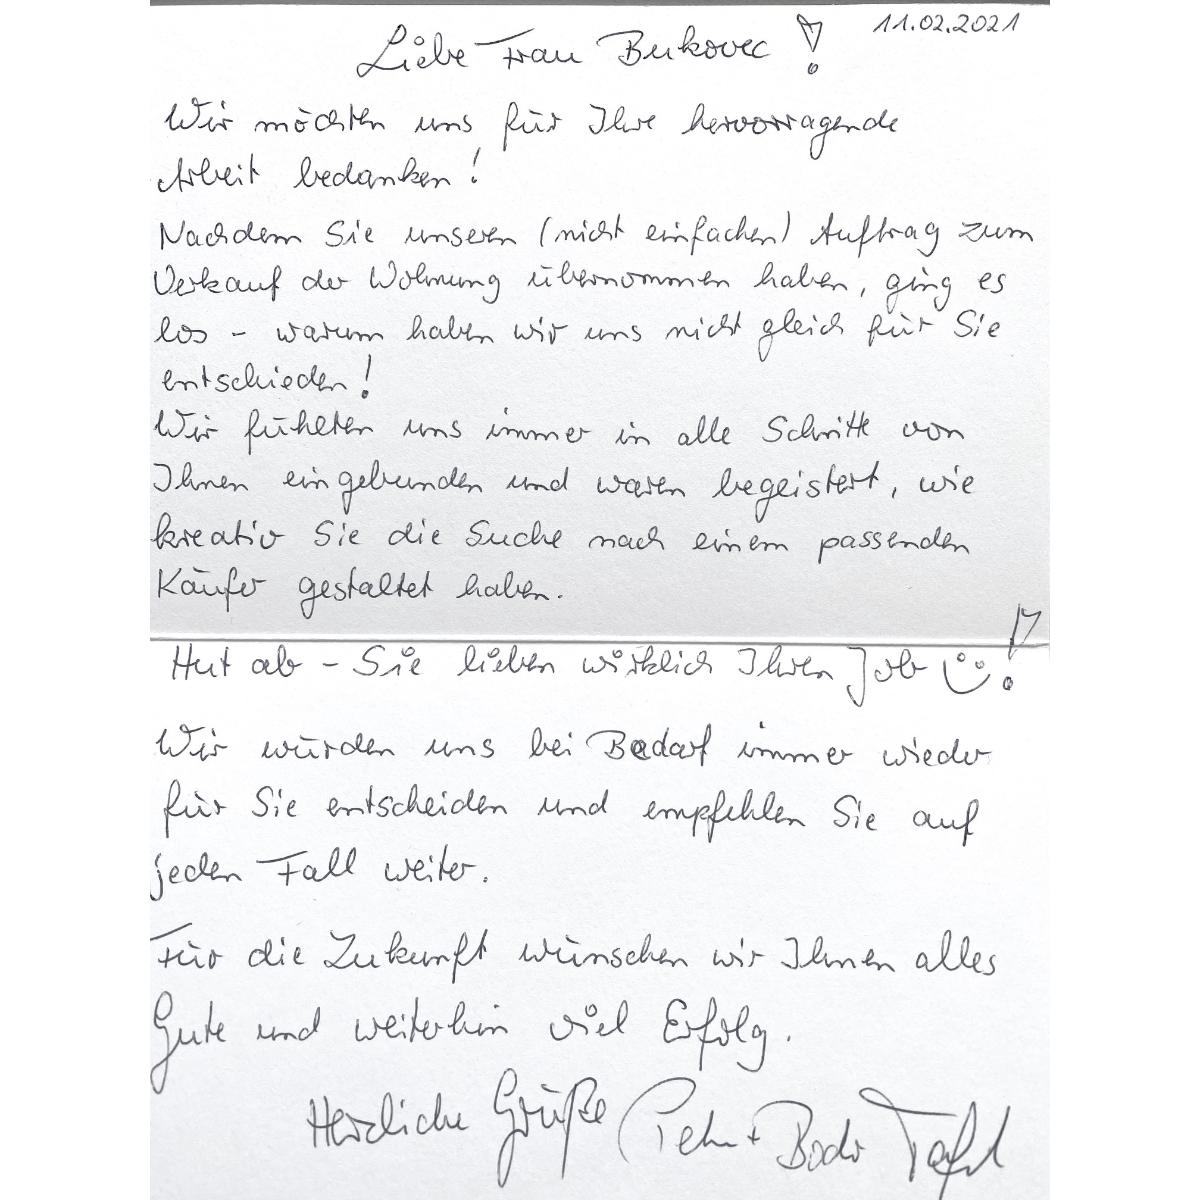 11.02.2021
Liebe Frau Bukovec!
Wir möchten uns für Ihre hervorragende
Arbeit bedanken!
Nachdem Sie unseren (nicht einfachen) Auftrag zum
Verkauf der Wohnung übernommen haben, ging es
los - warum haben wir uns nicht gleich für Sie
entschieden!
Wir fühlten uns immer in alle Schritte von
Ihnen eingebunden und waren begeistert, wie
kreativ Sie die Suche nach einem passenden
Käufer gestaltet haben.
Hut ab - Sie lieben wirklich Ihren Job!
Wir würden uns bei Bedarf immer wieder
für Sie entscheiden und empfehlen Sie auf
jeden Fall weiter.
Für die Zukunft wünschen wir Ihnen alles
Gute und weiterhin viel Erfolg.
Herzliche Grüße + Bodo